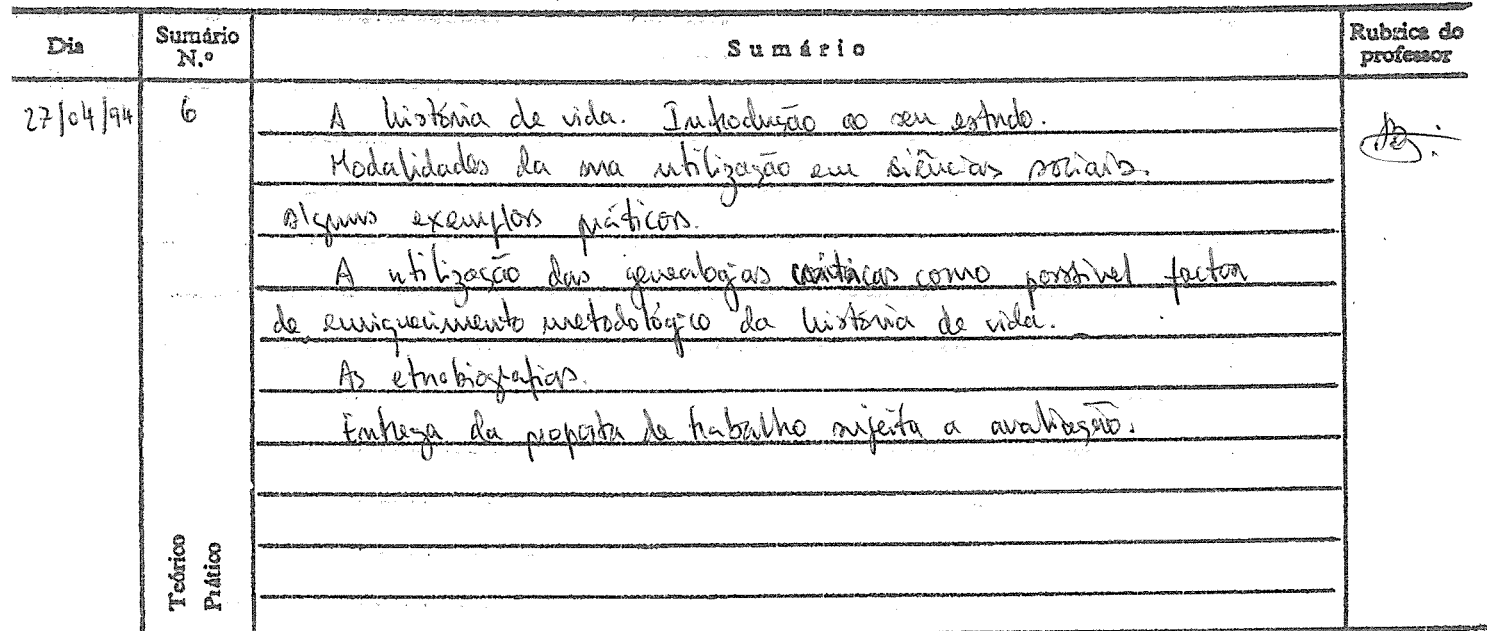 Dia Sumário N.º Sumário Rubrica do professor
27/04/94 6 A história de vida. Introdução ao seu estudo.
Modalidades da sua utilização em ciências sociais.
Alguns exemplos práticos.
A utilização das genealogias como possível factor
de enriquecimento metodológico da história de vida.
As etnobiografias.
Entrega da proposta de trabalho sujeita a avaliação.
Teórico
Prático